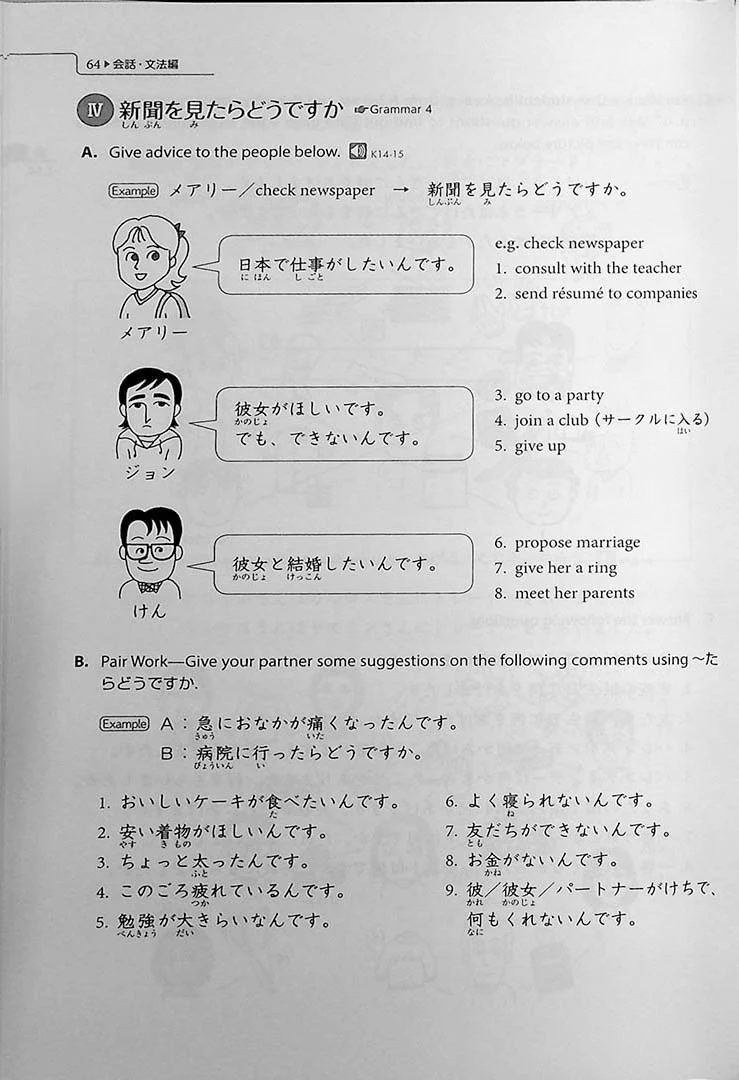 64▶会話・文法編
Ⅳ 新聞を見たらどうですか ☞Grammar 4
しんぶん み
A. Give advice to the people below. K14-15
Example メアリー／check newspaper → 新聞を見たらどうですか。
しんぶん み
日本で仕事がしたいんです。
にほん しごと
メアリー
e.g. check newspaper
1. consult with the teacher
2. send résumé to companies
彼女がほしいです。
かのじょ
でも、できないんです。
ジョン
3. go to a party
4. join a club (サークルに入る)
はい
5. give up
彼女と結婚したいんです。
かのじょ けっこん
けん
6. propose marriage
7. give her a ring
8. meet her parents
B. Pair Work—Give your partner some suggestions on the following comments using ～た
らどうですか.
Example A：急におなかが痛くなったんです。
きゅう いた
B：病院に行ったらどうですか。
びょういん い
1. おいしいケーキが食べたいんです。
た
2. 安い着物がほしいんです。
やす きもの
3. ちょっと太ったんです。
ふと
4. このごろ疲れているんです。
つか
5. 勉強が大きらいなんです。
べんきょう だい
6. よく寝られないんです。
ね
7. 友だちができないんです。
とも
8. お金がないんです。
かね
9. 彼／彼女／パートナーがけちで、
かれ かのじょ
何もくれないんです。
なに